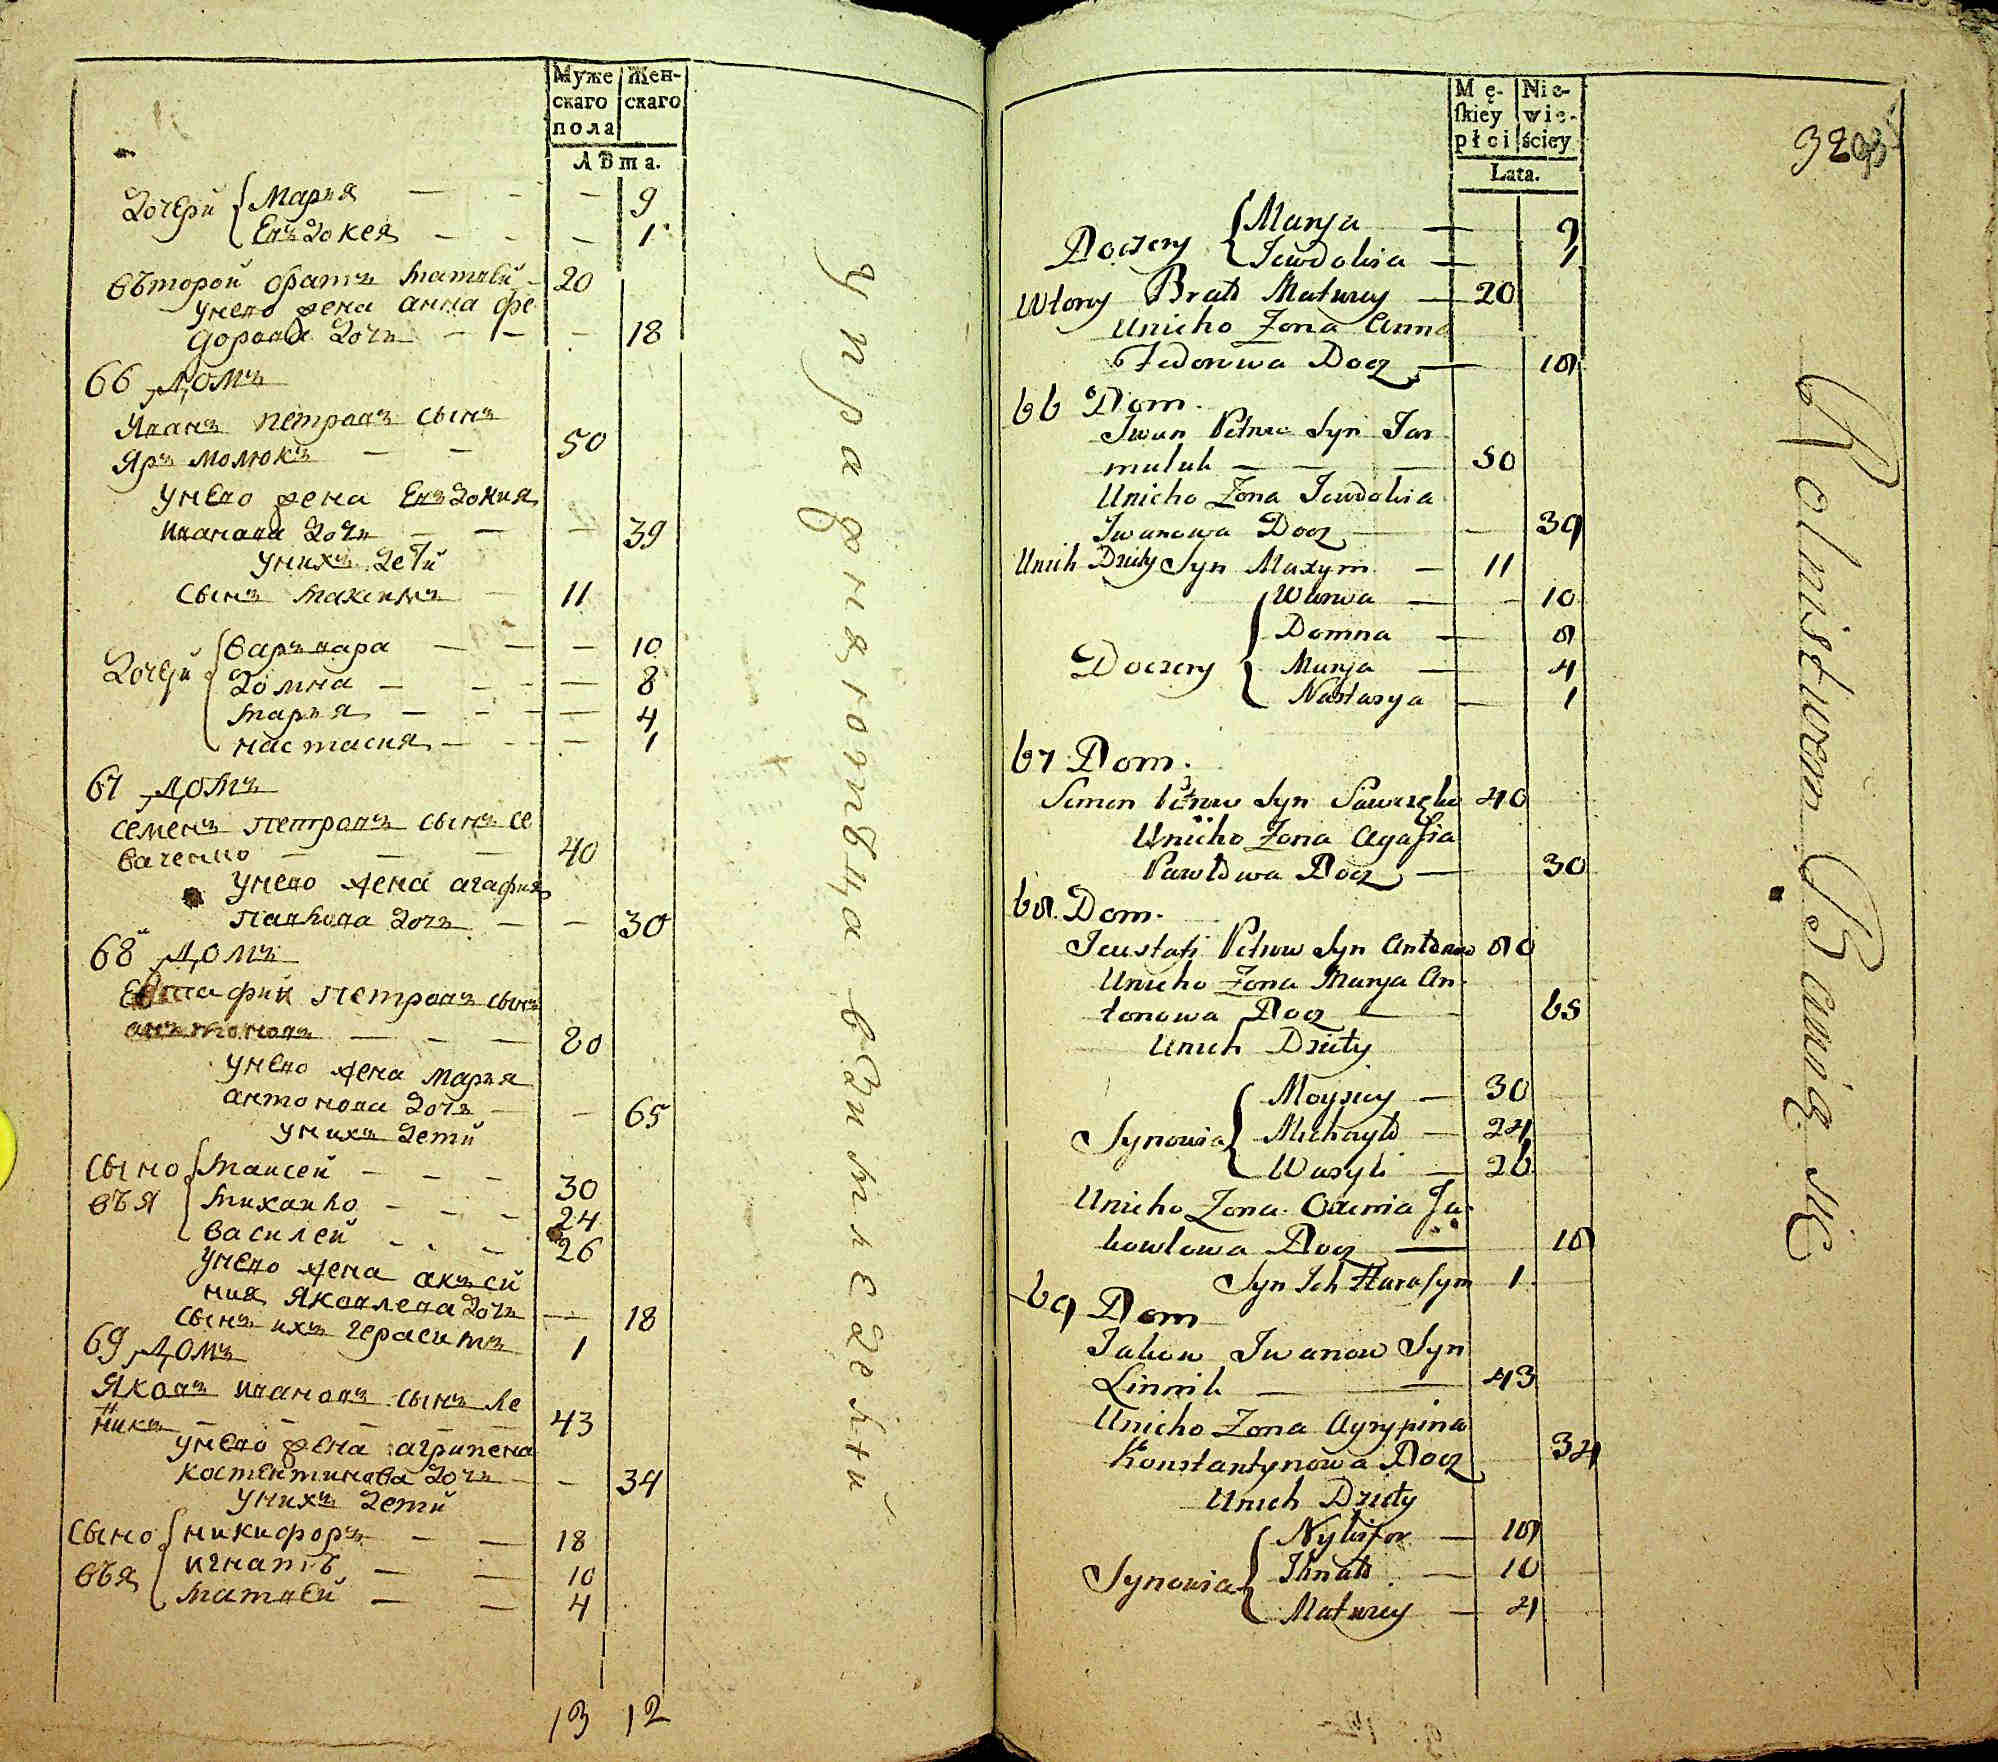 Муже
скаго
пола
Жен-
скаго
Лѣта.
Дочери
Марья — — — 9
Евъдокея — — — 1
Въторой братъ Матвѣй — 20
у него жена Анна Фе
дорова дочь — — — 18
66 Домъ
Иванъ Петровъ сынъ
Яръмолюкъ — — 50
у него жена Евъдокия
Иванова дочь — — — 39
у нихъ дети
Сынъ Максимъ — 11
Дочери
Варъвара — — — 10
Домна — — — 8
Марья — — — 4
Настасия — — — 1
67 Домъ
Семенъ Петровъ сынъ Се
ваченко — — — 40
у него жена Агафия
Павлова дочь — — 30
68 Домъ
Петровъ сынъ
Антоновъ — — — 80
у него жена Марья
Антонова дочь — — 65
у нихъ дети
Сыно
въя
Маисей — — — 30
Михайло — — — 24
Василей — — — 26
у него жена Акъси
ния Яковлева дочь — 18
сынъ ихъ Герасимъ 1
69 Домъ
Яковъ Ивановъ сынъ Ле
никъ — — — — 43
у него жена Агрипена
Костентинова дочь — — 34
у нихъ дети
Сыно
въя
Никифоръ — — 18
Игнатъ — — 10
Матвѣй — — 4
13 12
упражняютъца въ зимледелii
Mę-
skiey
płci
Nie-
wie-
ściey
Lata.
Doczery
Marya — 9
Jewdokia — 1
Wtory Brat Matwey — 20
Unieho Żona Anna
Fedorowa Docz — 18
66 Dom.
Iwan Petrow Syn Jar
muluk — — — 50
Unieho Żona Jewdokia
Iwanowa Docz — — 39
Unich Dziety Syn Maxym — 11
Doczery
Warwa — — 10
Domna — 8
Marya — 4
Nastasya — 1
67 Dom.
Semen Petrow Syn 40
Unieho Żona Agafia
Pawłowa Docz — 30
68. Dom.
Jeustafi Petrow Syn Antonow 80
Unieho Żona Marya An-
tonowa Docz — 65
Unich Dziety
Synowia
Moysiey — 30
Michayło — 24
Wasyli — 26
Unieho Żona Oxenia Ja-
kowlowa Docz — 18
Syn Ich Harasym 1
69 Dom
Jakow Iwanow Syn
Linnik — — 43
Unieho Żona Agrypina
Konstantynowa Docz 34
Unich Dziety
Synowia
Nykifor — 18
Ihnat — 10
Matwey — 4
Rolnistwem Bawią się